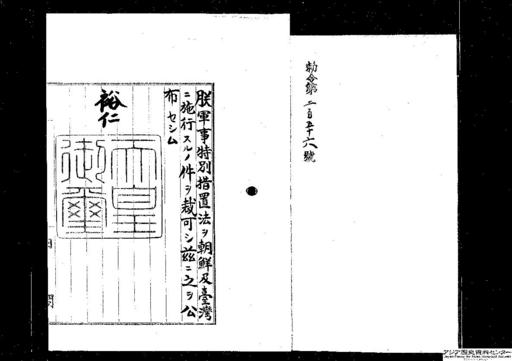 勅令第二百五十六號
朕軍事特別措置法ヲ朝鮮及臺灣
ニ施行スルノ件ヲ裁可シ茲ニ之ヲ公
布セシム
裕仁
天皇
御璽
内閣
アジア歴史資料センター